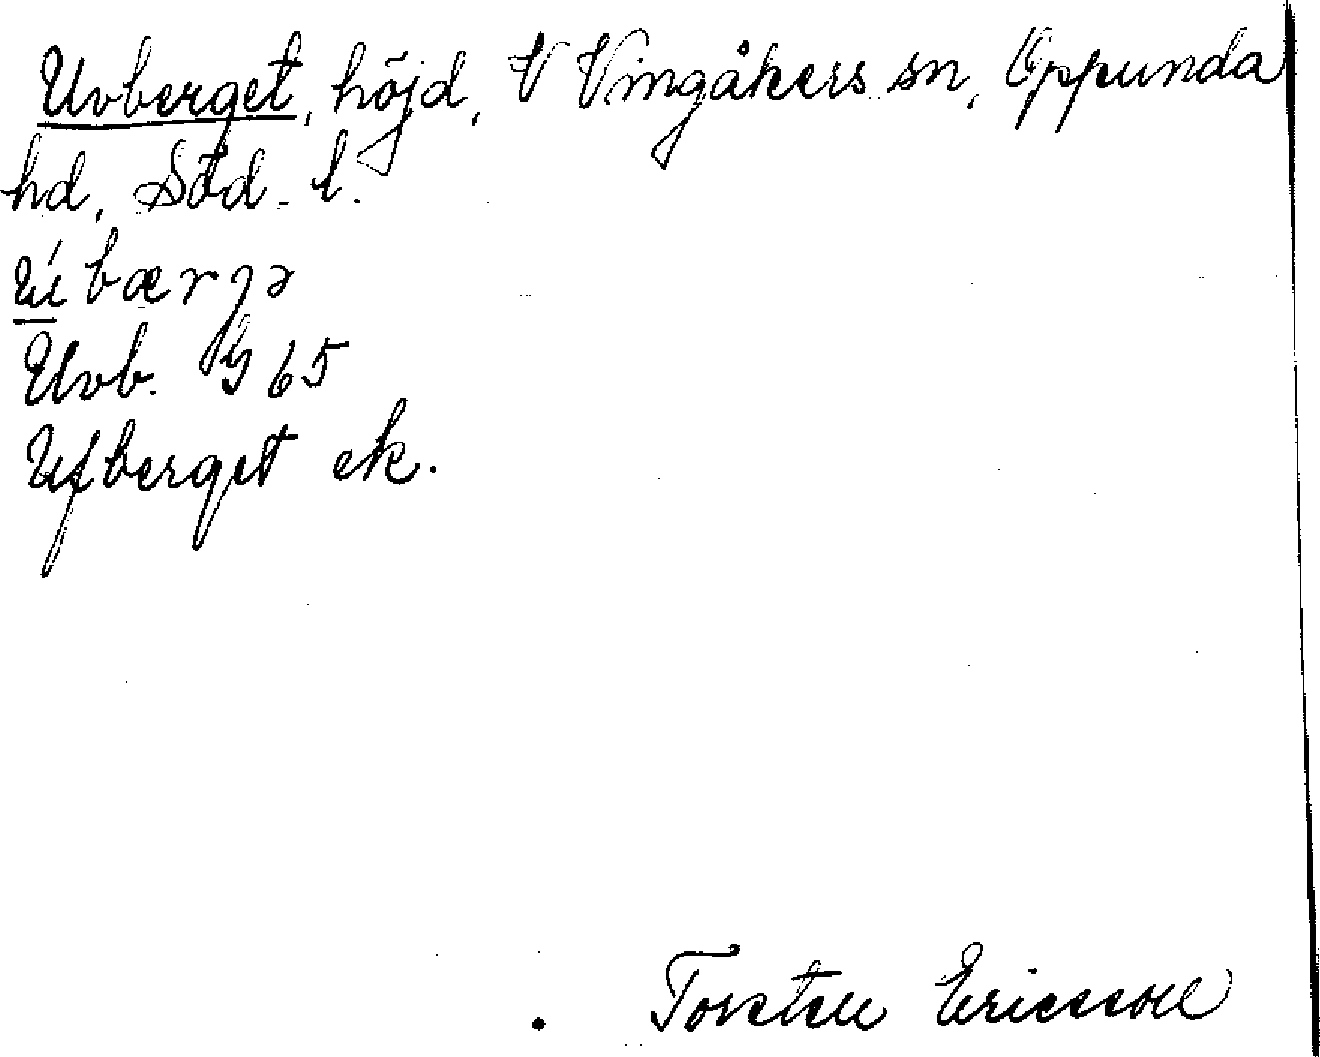 Uvberget, höjd, V Vingåkers sn, Oppunda
hd, Söd. l.
ú bærjə
Uvb. G 65
Ufberget ek.
Torsten Ericsson